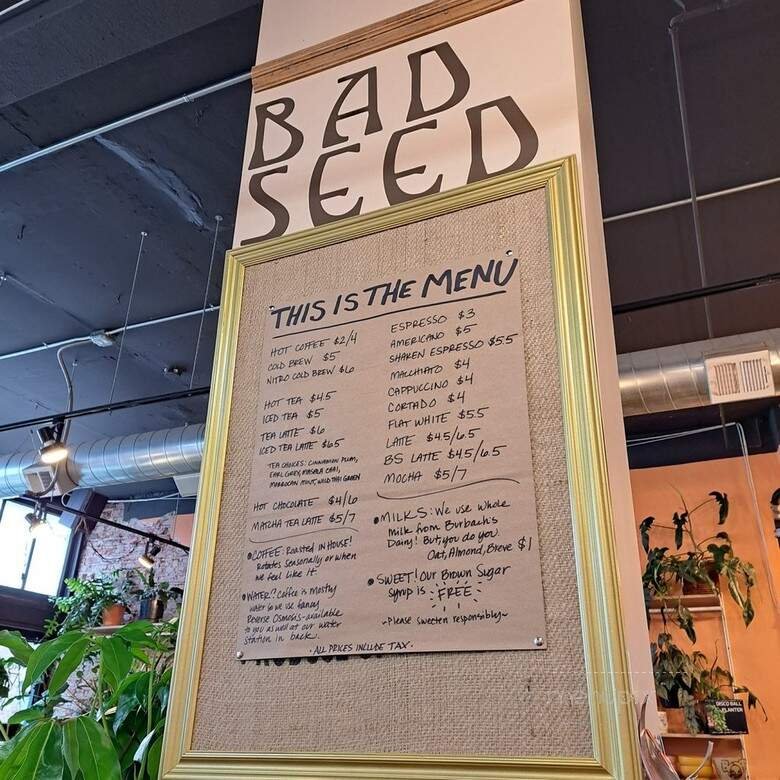 BAD
SEED
THIS IS THE MENU
HOT COFFEE $2/4
COLD BREW $5
NITRO COLD BREW $6
HOT TEA $4.5
ICED TEA $5
TEA LATTE $6
ICED TEA LATTE $6.5
TEA CHOICES: CINNAMON PLUM,
EARL GREY, MASALA CHAI,
MOROCCAN MINT, WILD THAI GREEN
HOT CHOCOLATE $4/6
MATCHA TEA LATTE $5/7
•COFFEE: Roasted IN HOUSE!
Rotates seasonally or when
we feel like it
•WATER? Coffee is mostly
water so we use fancy
Reverse Osmosis-available
to you as well at our water
station in back.
ESPRESSO $3
AMERICANO $5
SHAKEN ESPRESSO $5.5
MACCHIATO $4
CAPPUCCINO $4
CORTADO $4
FLAT WHITE $5.5
LATTE $4.5/6.5
BS LATTE $4.5/6.5
MOCHA $5/7
•MILKS: We use whole
milk from Burbach's
Dairy! But, you do you.
Oat, Almond, Breve $1
•SWEET! Our Brown Sugar
syrup is FREE
~Please sweeten responsibly~
•ALL PRICES INCLUDE TAX•
DISCO BALL
PLANTER